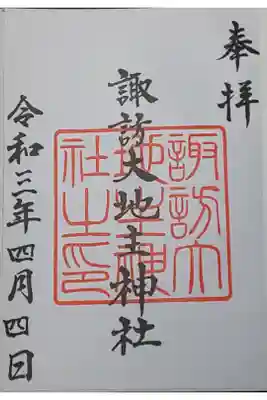 奉拝
諏訪大地主神社
令和三年四月四日
諏訪大
地主神
社之印